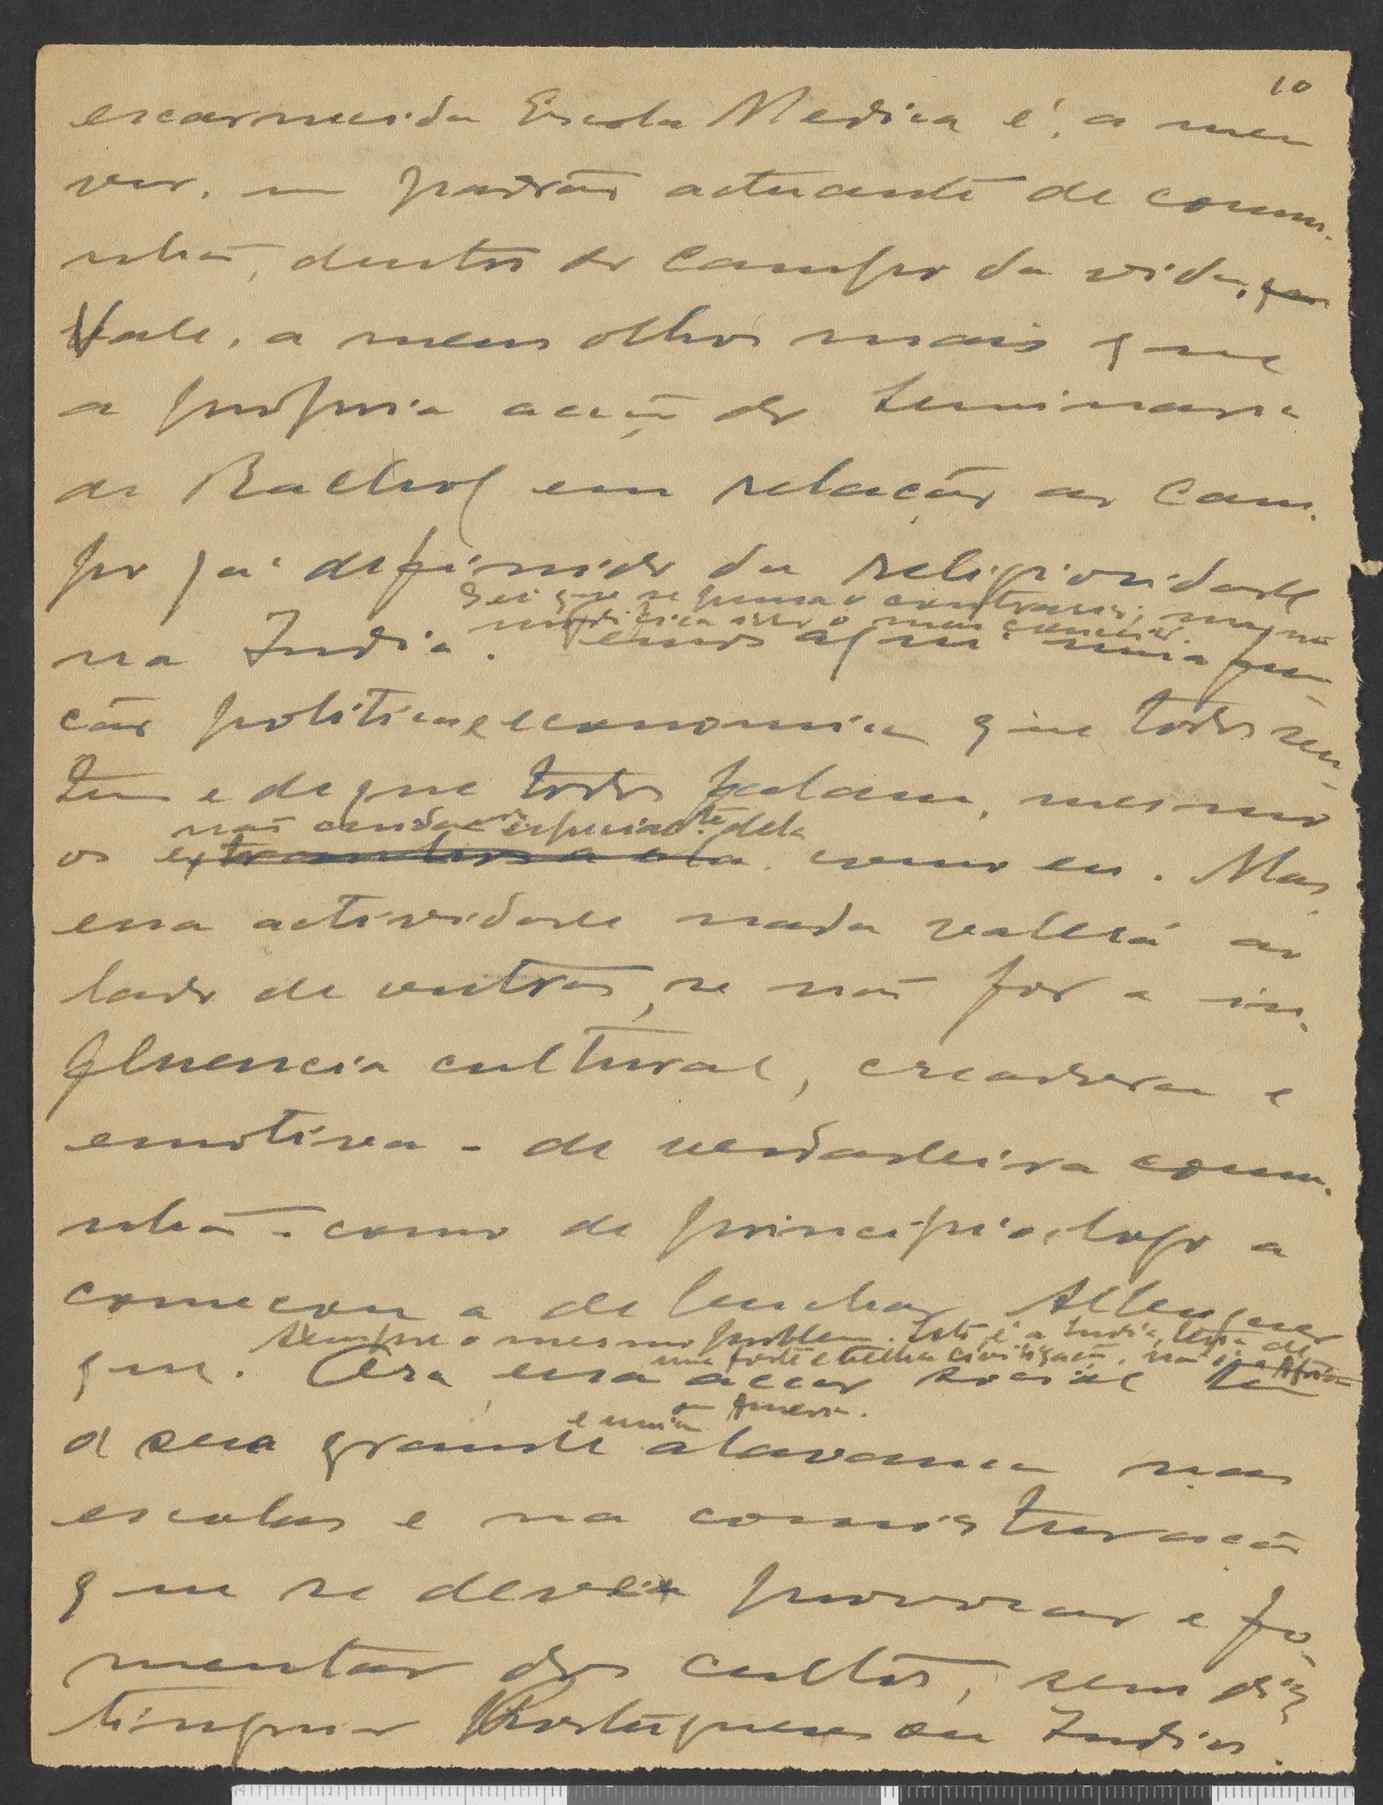 10
escarnecida Escola Medica é, a meu
ver, um padrão actuante de comu-
nhão, dentro do campo da vida,
Vale, a meus olhos mais que
a propria acção do Seminario
de Rachol em relação ao cam-
po já definido da religiosidade
Sei que se pensa o contrario, mas não
modifica isso o meu
na India. Temos aqui uma fun-
ção politica e economica que todos sen-
tem e de que todos falam, mesmo
não cuidadores especialmte dela
os extranhos a ela como eu. Mas
essa actividade nada valerá ao
lado de outras, se não for a in-
fluencia cultural, creadora e
emotiva - de verdadeira comu-
nhão - como de principio, logo a
começou a desenhar Albuquer
sempre o mesmo problema. Isto é a India, terra de
uma forte e velha civilização, não é a Africa
que. Ora essa acção social tem
ou America.
e unica
a sua grande alavanca nas
escolas e na comisturação
que se devia provocar e fo-
mentar dos cultos, sem dis-
tinguir Portugueses ou Indios.